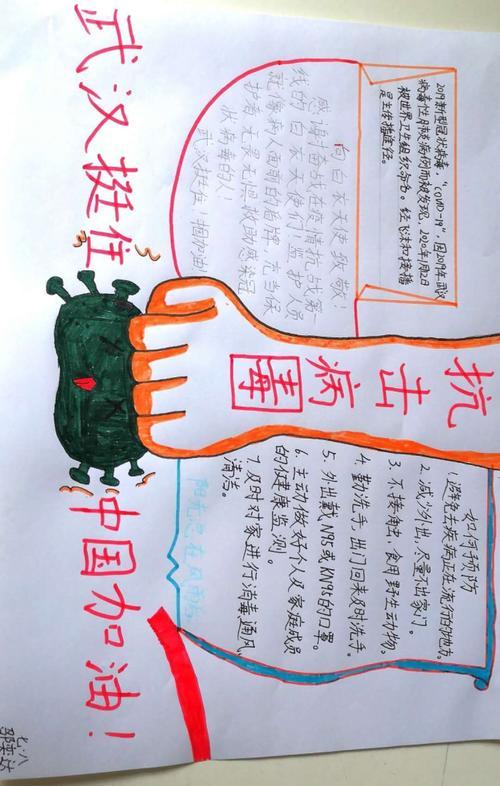 抗击病毒
2019新型冠状病毒，“COVID-19”，因2019年武汉
病毒性肺炎病例而被发现，2020年1月12日
被世界卫生组织命名。经飞沫和接触
是主传播途径。
向白衣天使致敬！
感谢奋战在疫情抗战第一
线的白衣天使们！监护人员
就像病人面前的盾牌，充当保
护者，无畏无惧，救助感染冠
状病毒的人！
武汉挺住！加油！
如何预防
1.避免去疾病正在流行的地方。
2.减少外出，尽量不出家门。
3.不接触，食用野生动物。
4.勤洗手，出门回来及时洗手。
5.外出戴N95或KN95的口罩。
6.主动做好个人及家庭成员
的健康监测。
7.及时对家进行消毒通风
清洁。
阳光总在风雨后
武汉挺住
中国加油！
七八